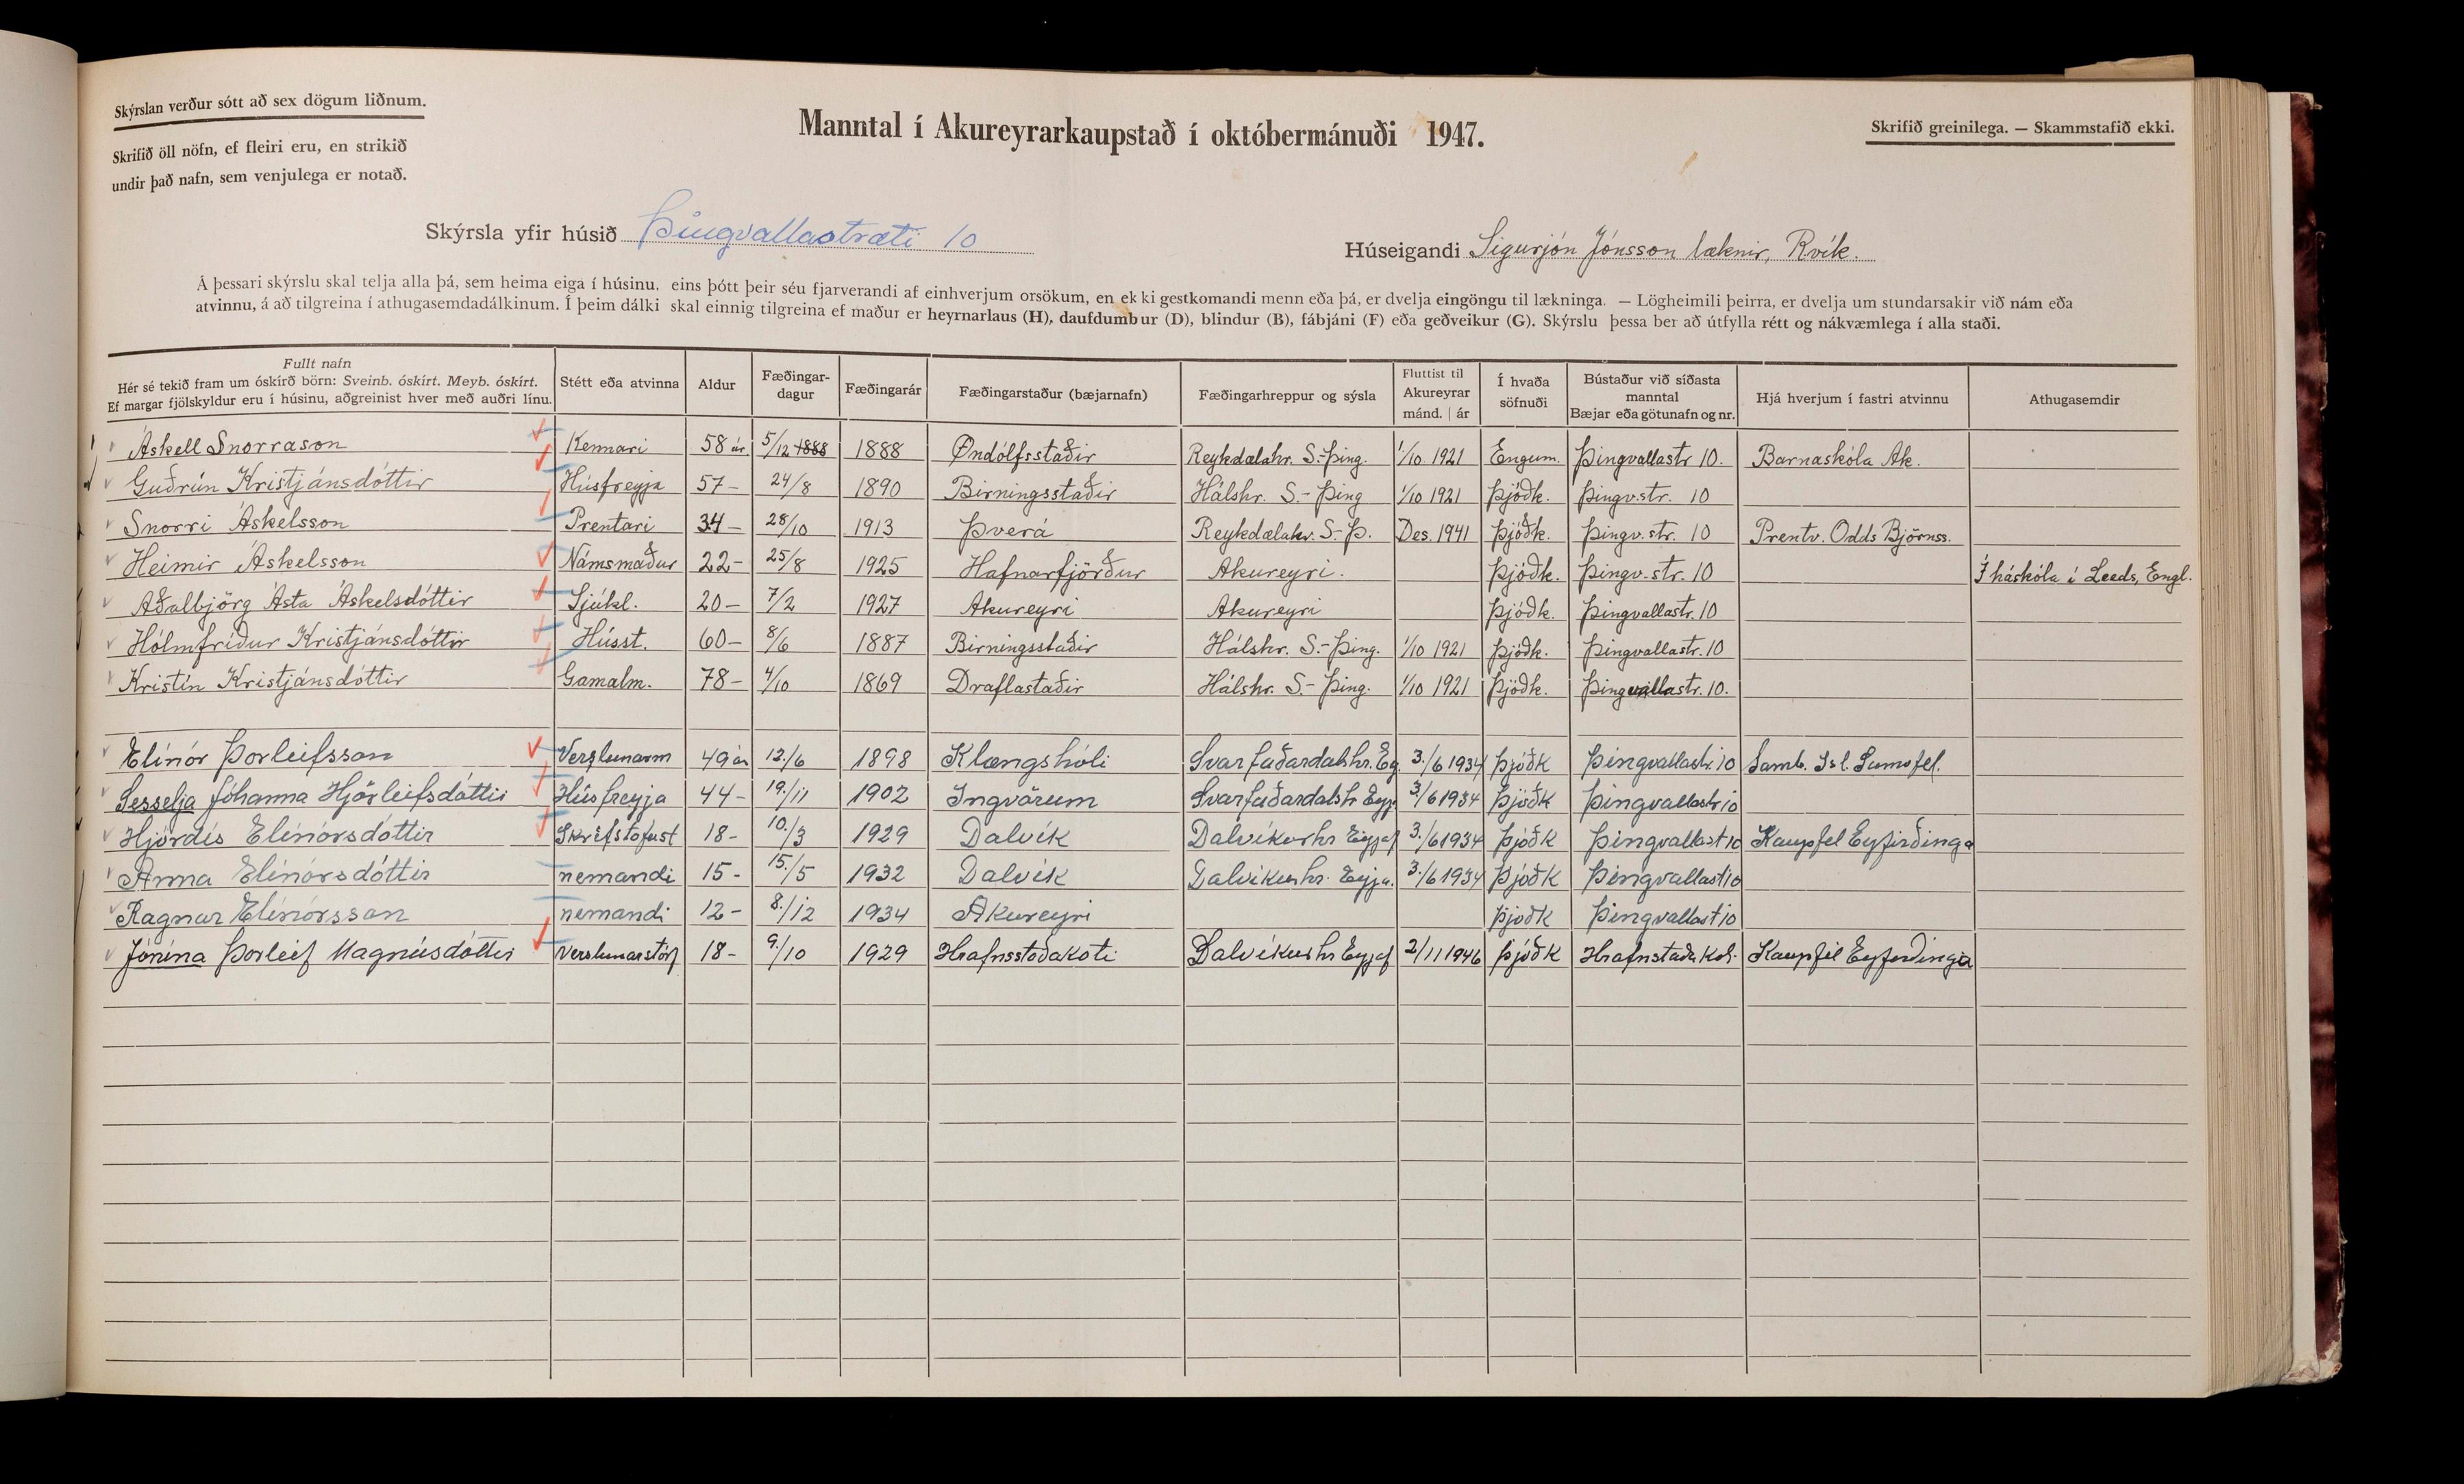 Skýrslan verður sótt að sex dögum liðnum.
Skrifið öll nöfn, ef fleiri eru, en strikið
undir það nafn, sem venjulega er notað.
Manntal í Akureyrarkaupstað í októbermánuði 1947.
Skrifið greinilega. — Skammstafið ekki.
Skýrsla yfir húsið Þingvallastræti 10
Húseigandi Sigurjón Jónsson læknir, Rvík.
Á þessari skýrslu skal telja alla þá, sem heima eiga í húsinu, eins þótt þeir séu fjarverandi af einhverjum orsökum, en ekki gestkomandi menn eða þá, er dvelja eingöngu til lækninga. — Lögheimili þeirra, er dvelja um stundarsakir við nám eða
atvinnu, á að tilgreina í athugasemdadálkinum. Í þeim dálki skal einnig tilgreina ef maður er heyrnarlaus (H), daufdumbur (D), blindur (B), fábjáni (F) eða geðveikur (G). Skýrslu þessa ber að útfylla rétt og nákvæmlega í alla staði.
Fullt nafn
Hér sé tekið fram um óskírð börn: Sveinb. óskírt. Meyb. óskírt.
Ef margar fjölskyldur eru í húsinu, aðgreinist hver með auðri línu.
Stétt eða atvinna
Aldur
Fæðingar-
dagur
Fæðingarár
Fæðingarstaður (bæjarnafn)
Fæðingarhreppur og sýsla
Fluttist til
Akureyrar
mánd. | ár
Í hvaða
söfnuði
Bústaður við síðasta
manntal
Bæjar eða götunafn og nr.
Hjá hverjum í fastri atvinnu
Athugasemdir
Áskell Snorrason Kennari 58 ár 5/12 1888 1888 Öndólfsstaðir Reykdælahr. S.-Þing. 1/10 1921 Engum. Þingvallastr 10. Barnaskóla Ak.
Guðrún Kristjánsdóttir Húsfreyja 57– 24/8 1890 Birningsstaðir Hálshr. S.-Þing 1/10 1921 Þjóðk. Þingv.str. 10
Snorri Áskelsson Prentari 34– 28/10 1913 Þverá Reykdælahr. S.-Þ. Des. 1941 Þjóðk. Þingv.str. 10 Prentv. Odds Björnss.
Heimir Áskelsson Námsmaður 22– 25/8 1925 Hafnarfjörður Akureyri. Þjóðk. Þingv.str. 10 Í háskóla í Leeds, Engl.
Aðalbjörg Ásta Áskelsdóttir Sjúkl. 20– 7/2 1927 Akureyri Akureyri Þjóðk. Þingvallastr. 10
Hólmfríður Kristjánsdóttir Hússt. 60– 8/6 1887 Birningsstaðir Hálshr. S.-Þing. 1/10 1921 Þjóðk. Þingvallastr. 10
Kristín Kristjánsdóttir Gamalm. 78– 4/10 1869 Draflastaðir Hálshr. S.-Þing. 1/10 1921 Þjóðk. Þingvallastr. 10.
Elínór Þorleifsson Verslunarm 49 ár 12./6 1898 Klængshóli Svarfaðardalshr. Ey. 3./6 1934 Þjóðk Þingvallastr. 10 Samb. Ísl. Samvfel.
Sesselja Jóhanna Hjörleifsdóttir Húsfreyja 44– 19./11 1902 Ingvörum Svarfaðardalshr Eyj. 3./6 1934 Þjóðk Þingvallastr 10
Hjördís Elínórsdóttir Skrifstofust 18– 10./3 1929 Dalvík Dalvíkurhr Eyjaf 3./6 1934 Þjóðk Þingvallast 10 Kaupfel Eyfirðinga
Anna Elínórsdóttir nemandi 15– 15./5 1932 Dalvík Dalvíkurhr. Eyja. 3./6 1934 Þjóðk Þingvallast 10
Ragnar Elínórsson nemandi 12– 8./12 1934 Akureyri Þjóðk Þingvallast 10
Jónína Þorleif Magnúsdóttir Verslunarstörf 18– 9./10 1929 Hrafnsstaðakoti Dalvíkurhr Eyjaf 2/11 1946 Þjóðk Hrafnstaða Kot. Kaupfél Eyfirðinga